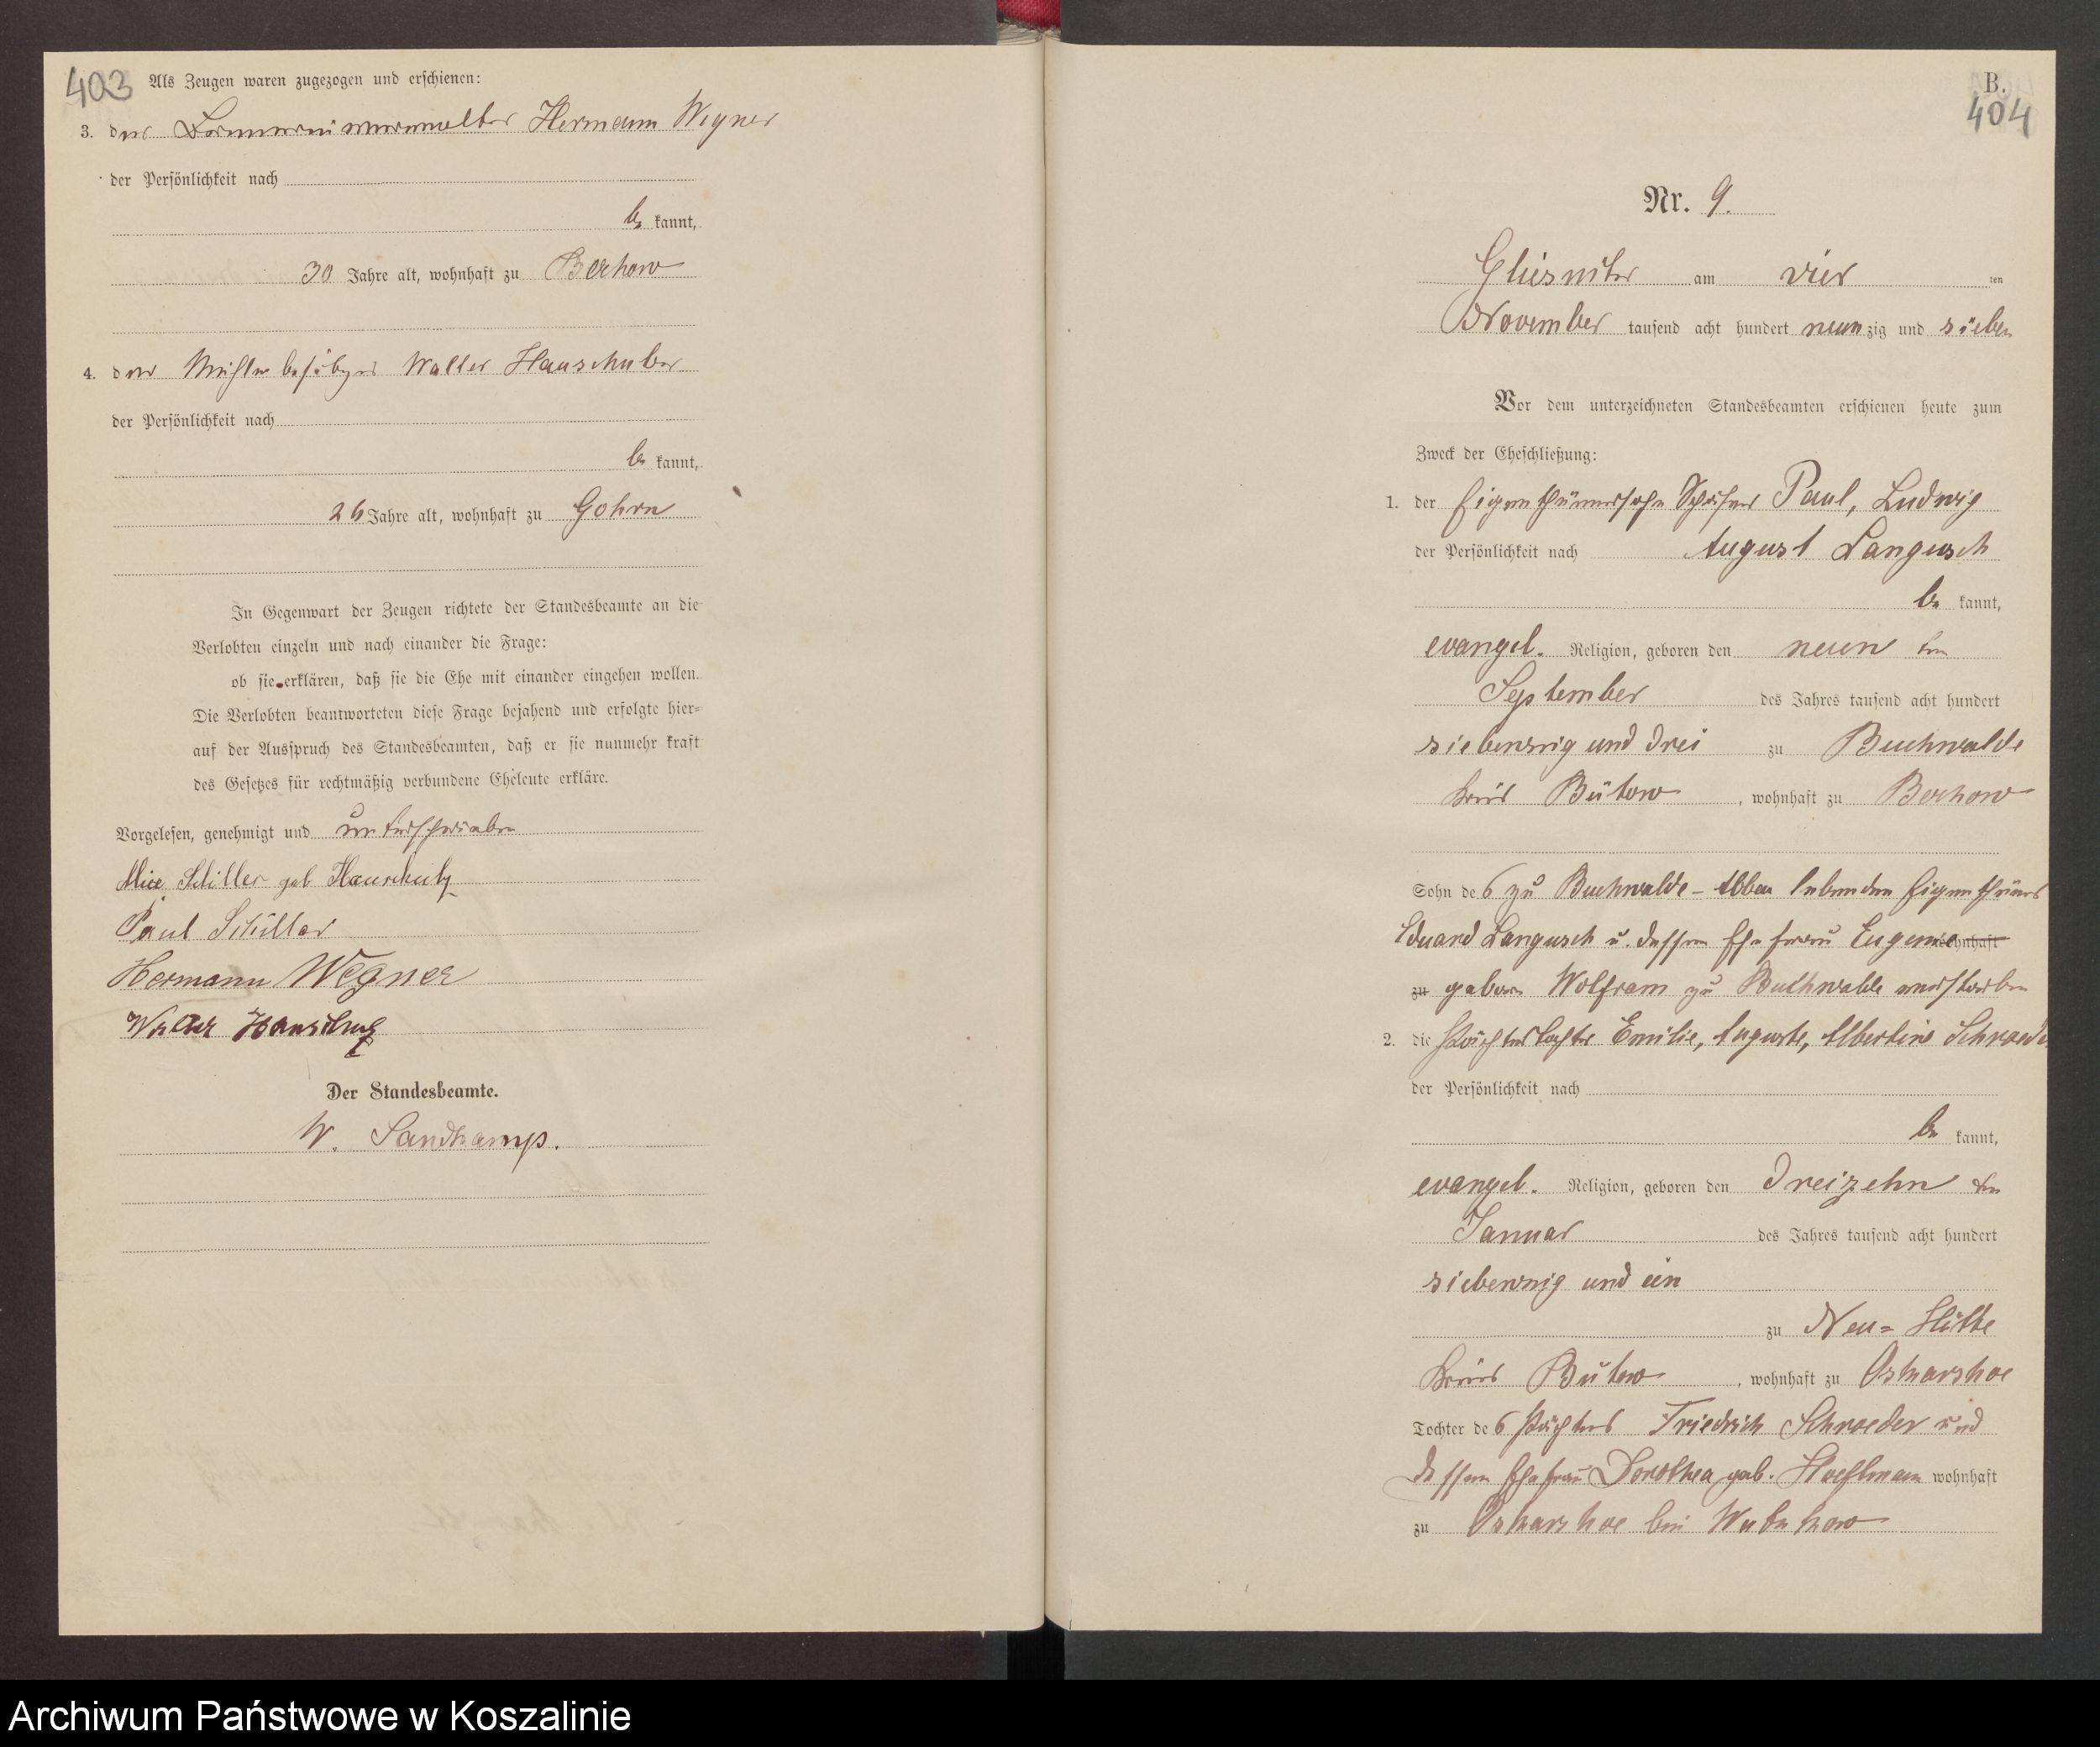 403
Als Zeugen waren zugezogen und erschienen:
3. der Hermann Wegner
der Persönlichkeit nach
be kannt,
30 Jahre alt, wohnhaft zu Bochow
4. der Mühlenbesitzer Walter Hauschulz
der Persönlichkeit nach
be kannt,
26 Jahre alt, wohnhaft zu Gohren
In Gegenwart der Zeugen richtete der Standesbeamte an die
Verlobten einzeln und nach einander die Frage:
ob sie erklären, daß sie die Ehe mit einander eingehen wollen.
Die Verlobten beantworteten diese Frage bejahend und erfolgte hier=
auf der Ausspruch des Standesbeamten, daß er sie nunmehr kraft
des Gesetzes für rechtmäßig verbundene Eheleute erkläre.
Vorgelesen, genehmigt und unterschrieben
Alice Schiller geb
Paul Schiller
Hermann Wegner
Walter
Der Standesbeamte.
W. Sandkamp.
B.
404
Nr. 9.
Gliesnitz am vier ten
November tausend acht hundert neunzig und sieben
Vor dem unterzeichneten Standesbeamten erschienen heute zum
Zweck der Eheschließung:
1. der Eigenthümersohn Schäfer Paul, Ludwig
der Persönlichkeit nach August Langusch
be kannt,
evangel. Religion, geboren den neun ten
September des Jahres tausend acht hundert
siebenzig und drei zu Buchwalde
Kreis Bütow, wohnhaft zu Bochow
Sohn des zu Buchwalde-Abbau lebenden Eigenthümers
Eduard Langusch u. dessen Ehefrau Eugenie wohnhaft
zu geboren Wolfram zu Buchwalde verstorben
2. die Pächtertochter Emilie, Auguste, Albertine Schroeder
der Persönlichkeit nach
be kannt,
evangel. Religion, geboren den dreizehn ten
Januar des Jahres tausend acht hundert
siebenzig und ein
zu Neu= Hütte
Kreis Bütow, wohnhaft zu Oskarshoe
Tochter des Pächters Friedrich Schroeder und
dessen Ehefrau Dorothea geb. wohnhaft
zu Oskarshoe bei Wutzkow
Archiwum Państwowe w Koszalinie